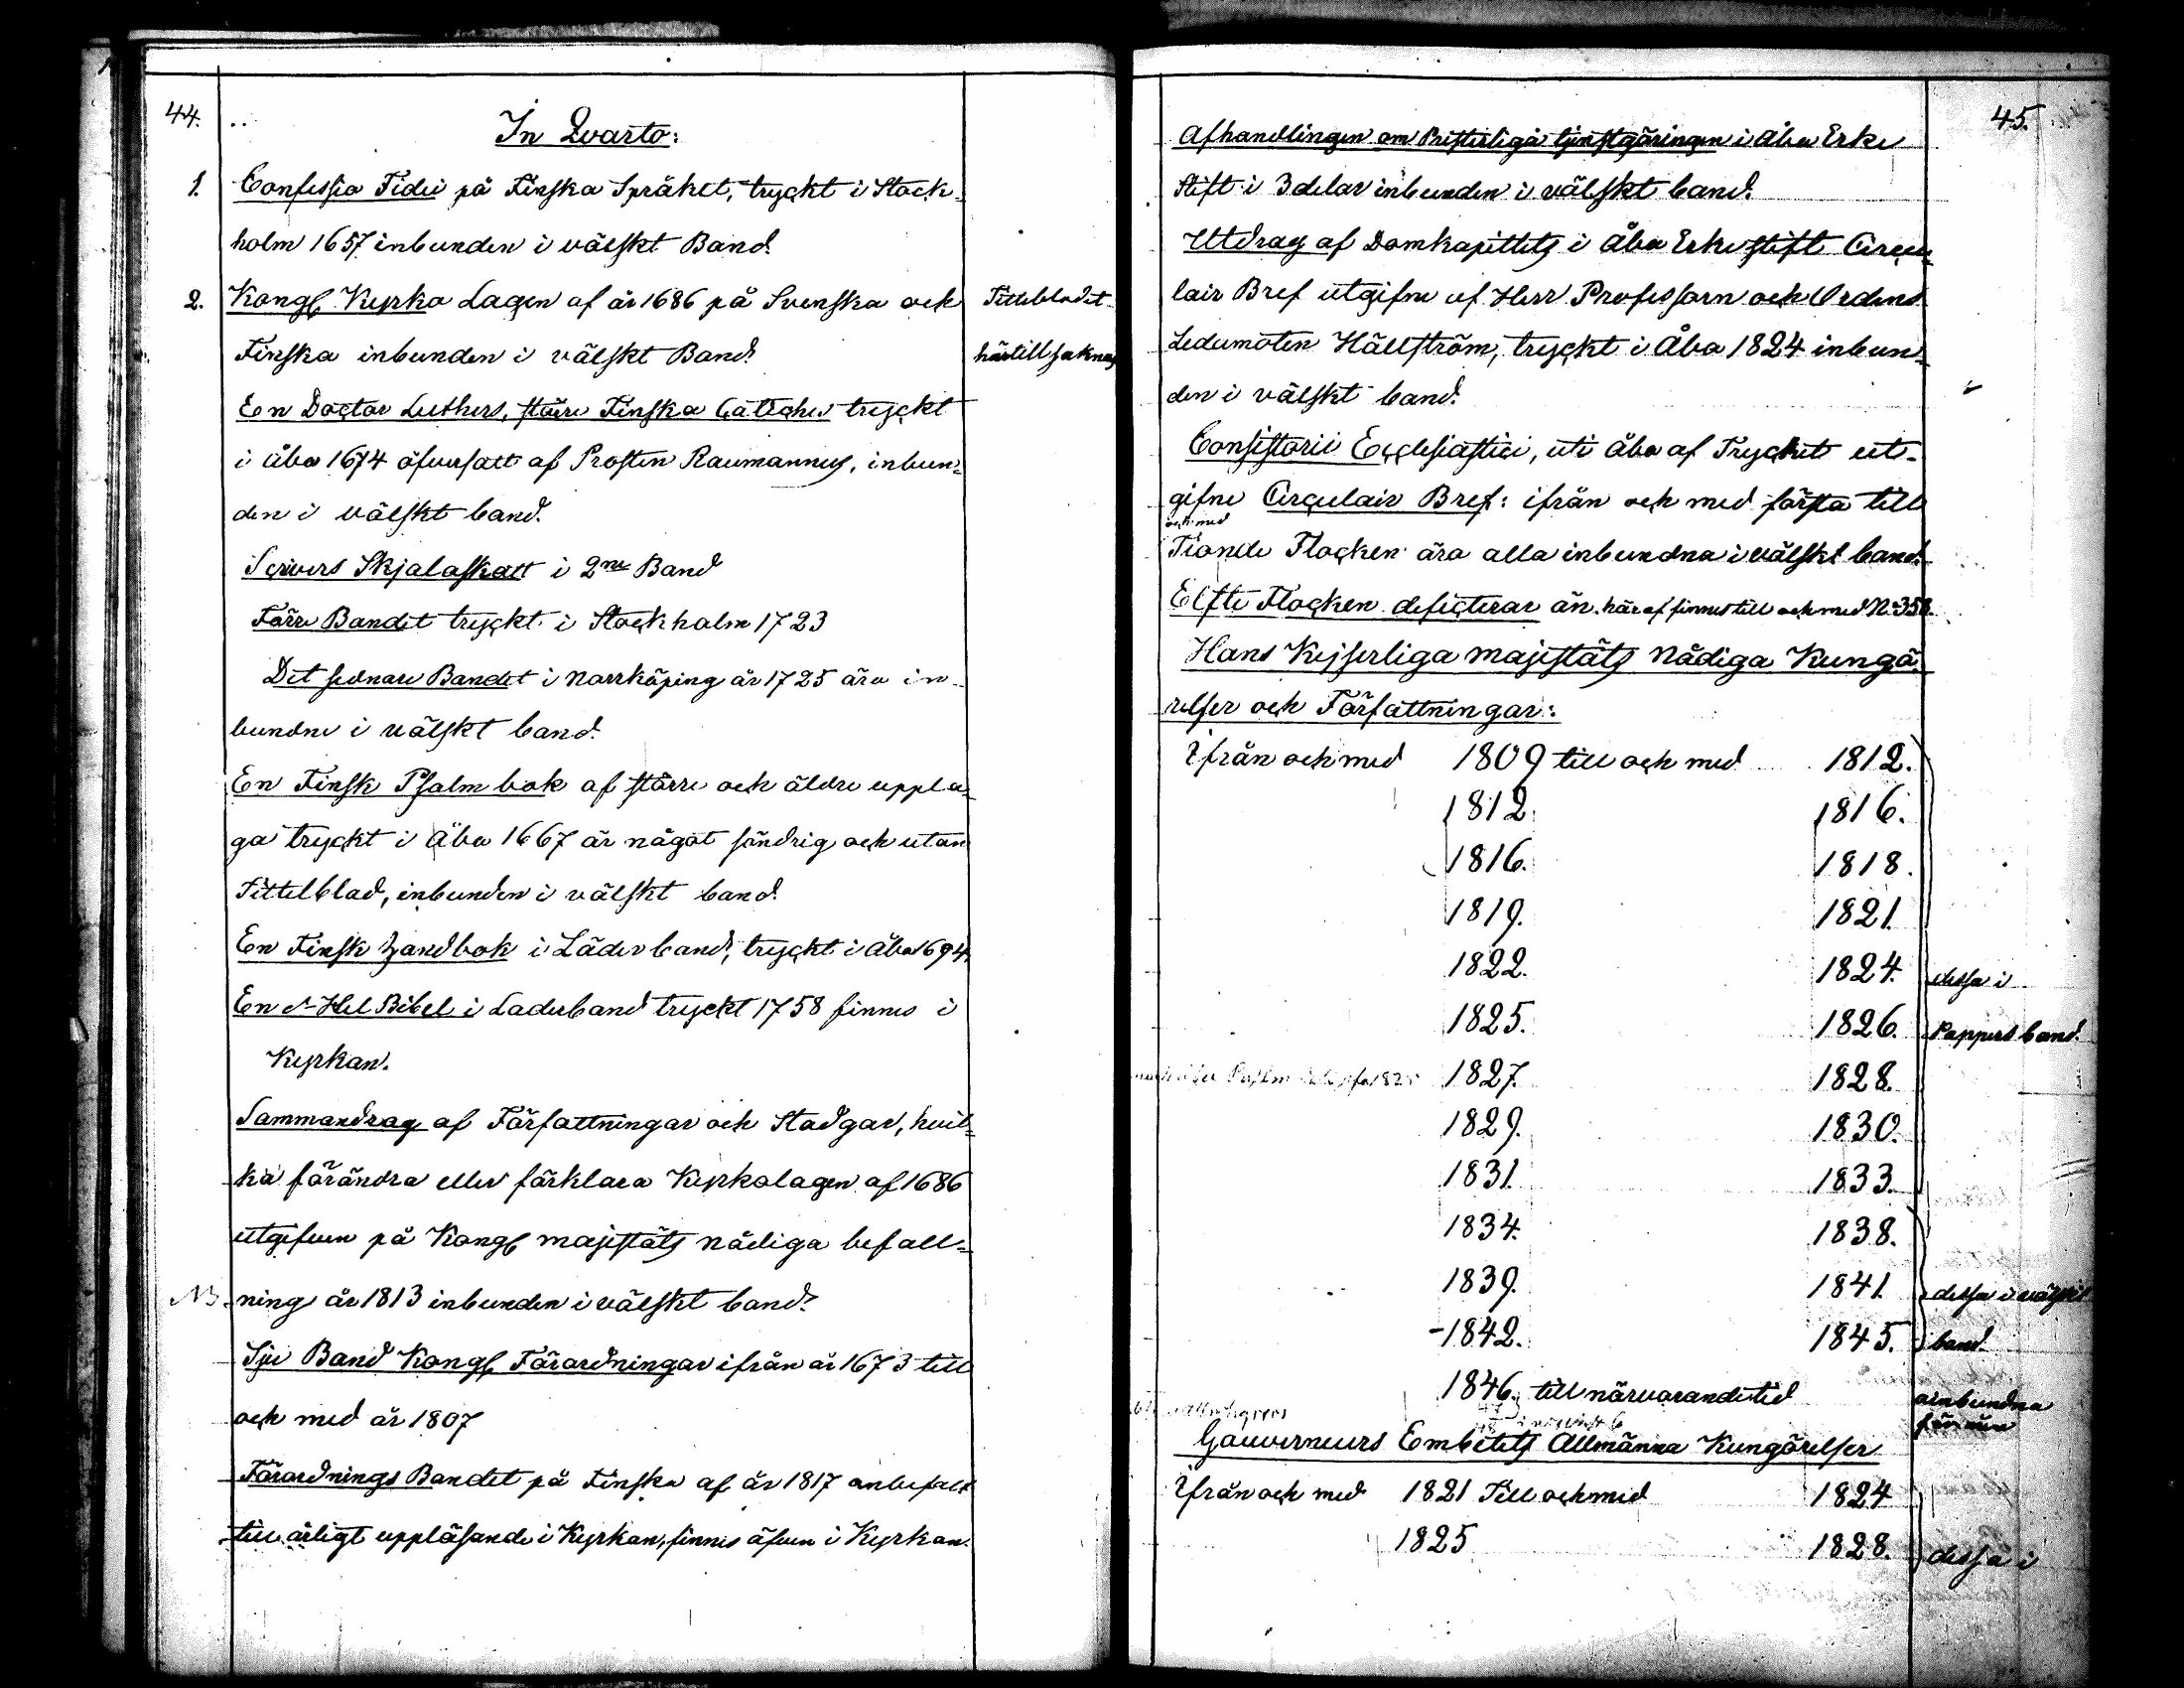 44.
In Qvarto:
1. Confessia Fidei på Finska Språket, tryckt i Stock-
holm 1657 inbunden i välskt Band.
2. Kongl. Kyrko Lagen af år 1686 på Svenska och Tittelbladet
Finska inbunden i välskt Band. härtill saknas
En Doctor Luthers, större Finska Catches tryckt
i Åbo 1674 öfversatt af Prosten Raumannus, inbun-
den i välskt band.
Scrivers Skjalaskatt i 2ne Band
Förre Bandet tryckt i Stockholm 1723
Det sednare Bandet i Norrköping år 1725 äro in-
bundne i välskt band.
En Finsk Psalmbok af större och äldre uppla-
ga tryckt i Åbo 1667 är något söndrig och utan
Tittelblad, inbunden i välskt band.
En Finsk Handbok i Läder band, tryckt i Åbo 1694.
En d:o Hel Bibel i Laderband tryckt 1758 finnes i
Kyrkan.
Sammandrag af Författningar och Stadgar, hvil-
ka förändra eller förklara Kyrkolagen af 1686
utgifven på Kongl. majestäts nådiga befall-
NB. ning år 1813 inbunden i välskt band.
Sju Band Kongl. Förordningar ifrån år 1673 till
och med år 1807
Förordnings Bandet på Finska af år 1817 anbefalt
till årligt uppläsande i Kyrkan, finnes äfven i Kyrkan.
45.
Afhandlingen om Presterliga tjenstgöringen i Åbo Erke
Stift i 3 delar inbunden i välskt band.
Utdrag af Domkapitlets i Åbo Erkestift Circu-
lair Bref utgifne af Herr Professorn och Ordens
Ledamoten Hällström, tryckt i Åbo 1824 inbun-
den i välskt band.
Consistorii Ecclesiastici, uti Åbo af Trycket ut-
gifne Circulair Bref: ifrån och med första till
och med
Tionde Flocken äro alla inbundna i välskt band.
Elfte Flocken defecterar än. häraf finnes till och med N:o 358.
Hans Kejserliga majestäts Nådiga Kungö-
relser och Författningar:
Ifrån och med 1809 till och med 1812.
1812. 1816.
1816. 1818.
1819. 1821.
1822. 1824. dessa i
1825. 1826. Pappers band.
1827. 1828.
1829. 1830.
1831. 1833.
1834. 1838.
1839. 1841. dessa i välskt
-1842. 1845. band.
1846. till närvarande tid oinbundna
för nu
Gouverneurs Embetets Allmänna Kungörelser
Ifrån och med 1821 Till och med 1824
1825 1828. dessa i